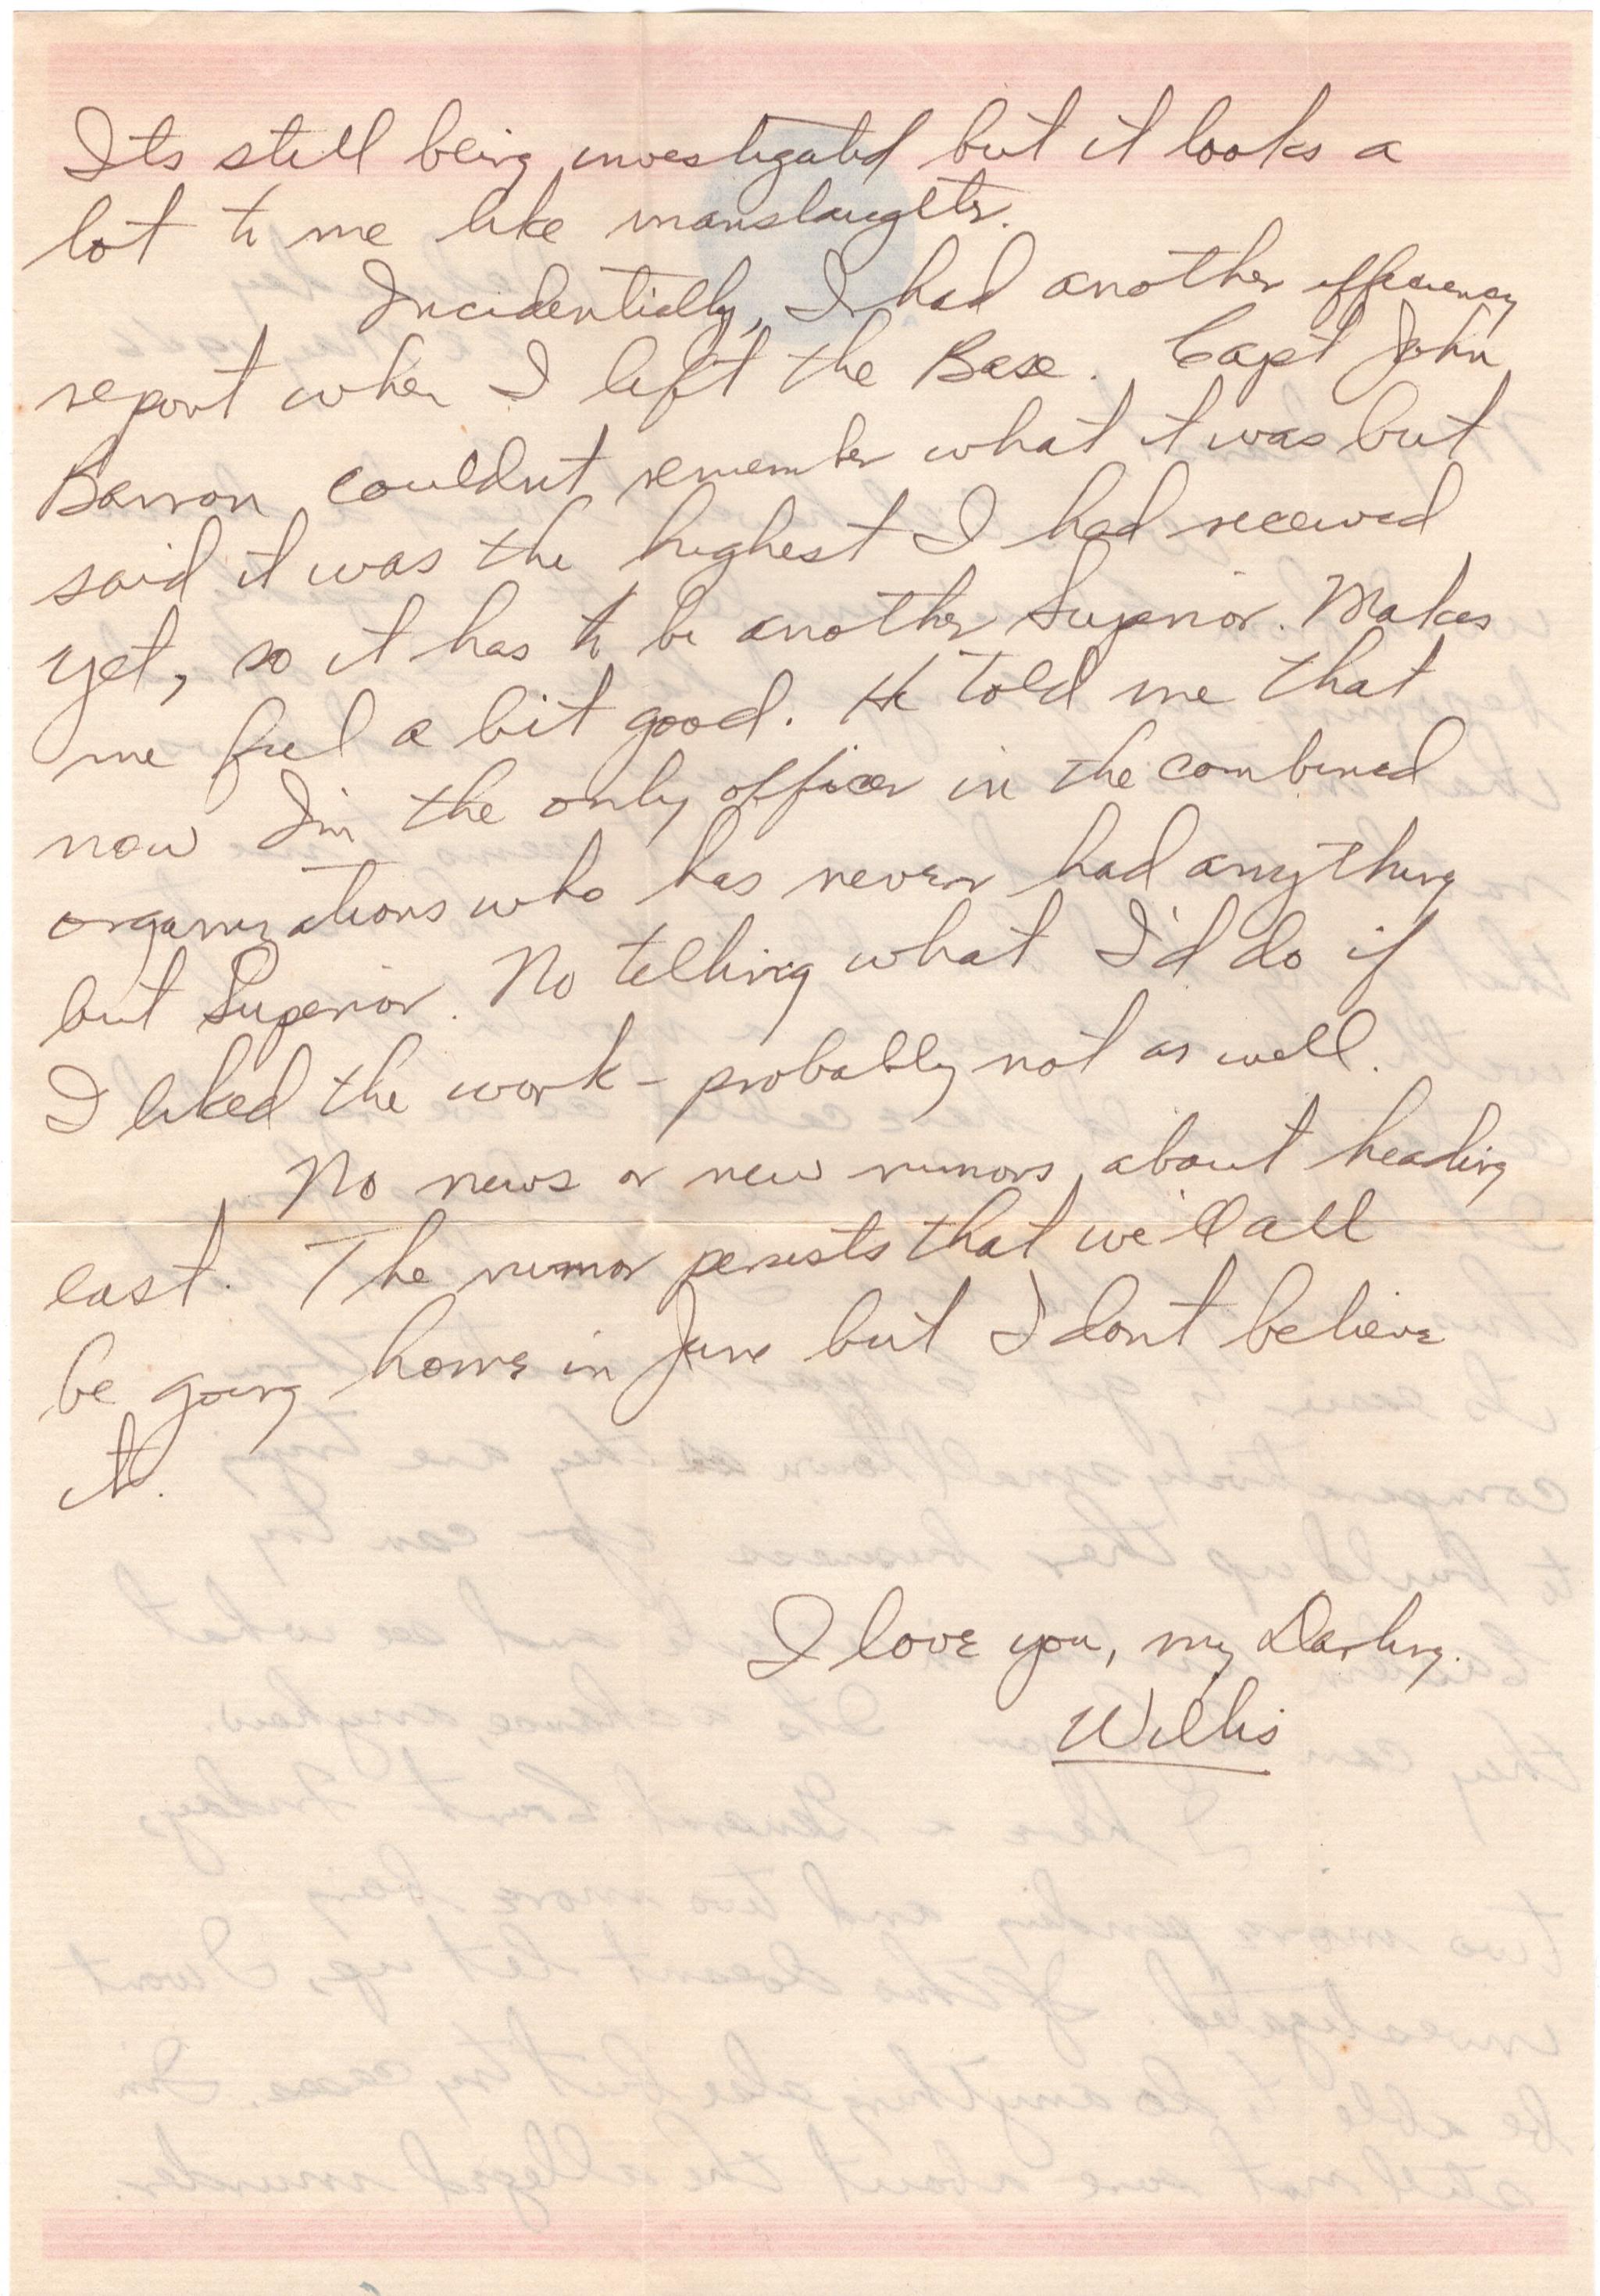 Its still being investigated but it looks a
lot to me like manslaughter.
Incidentially, I had another efficiency
report when I left the Base. Capt John
Barron couldnt remember what it was but
said it was the highest I had received
yet, so it has to be another Superior. Makes
me feel a bit good. He told me that
now I'm the only officer in the combined
organizations who has never had anything
but Superior. No telling what I'd do if
I liked the work - probably not as well.
No news or new rumors about heading
east. The rumor persists that we'll all
be going home in June but I dont believe
it.
I love you, my Darling.
Willis